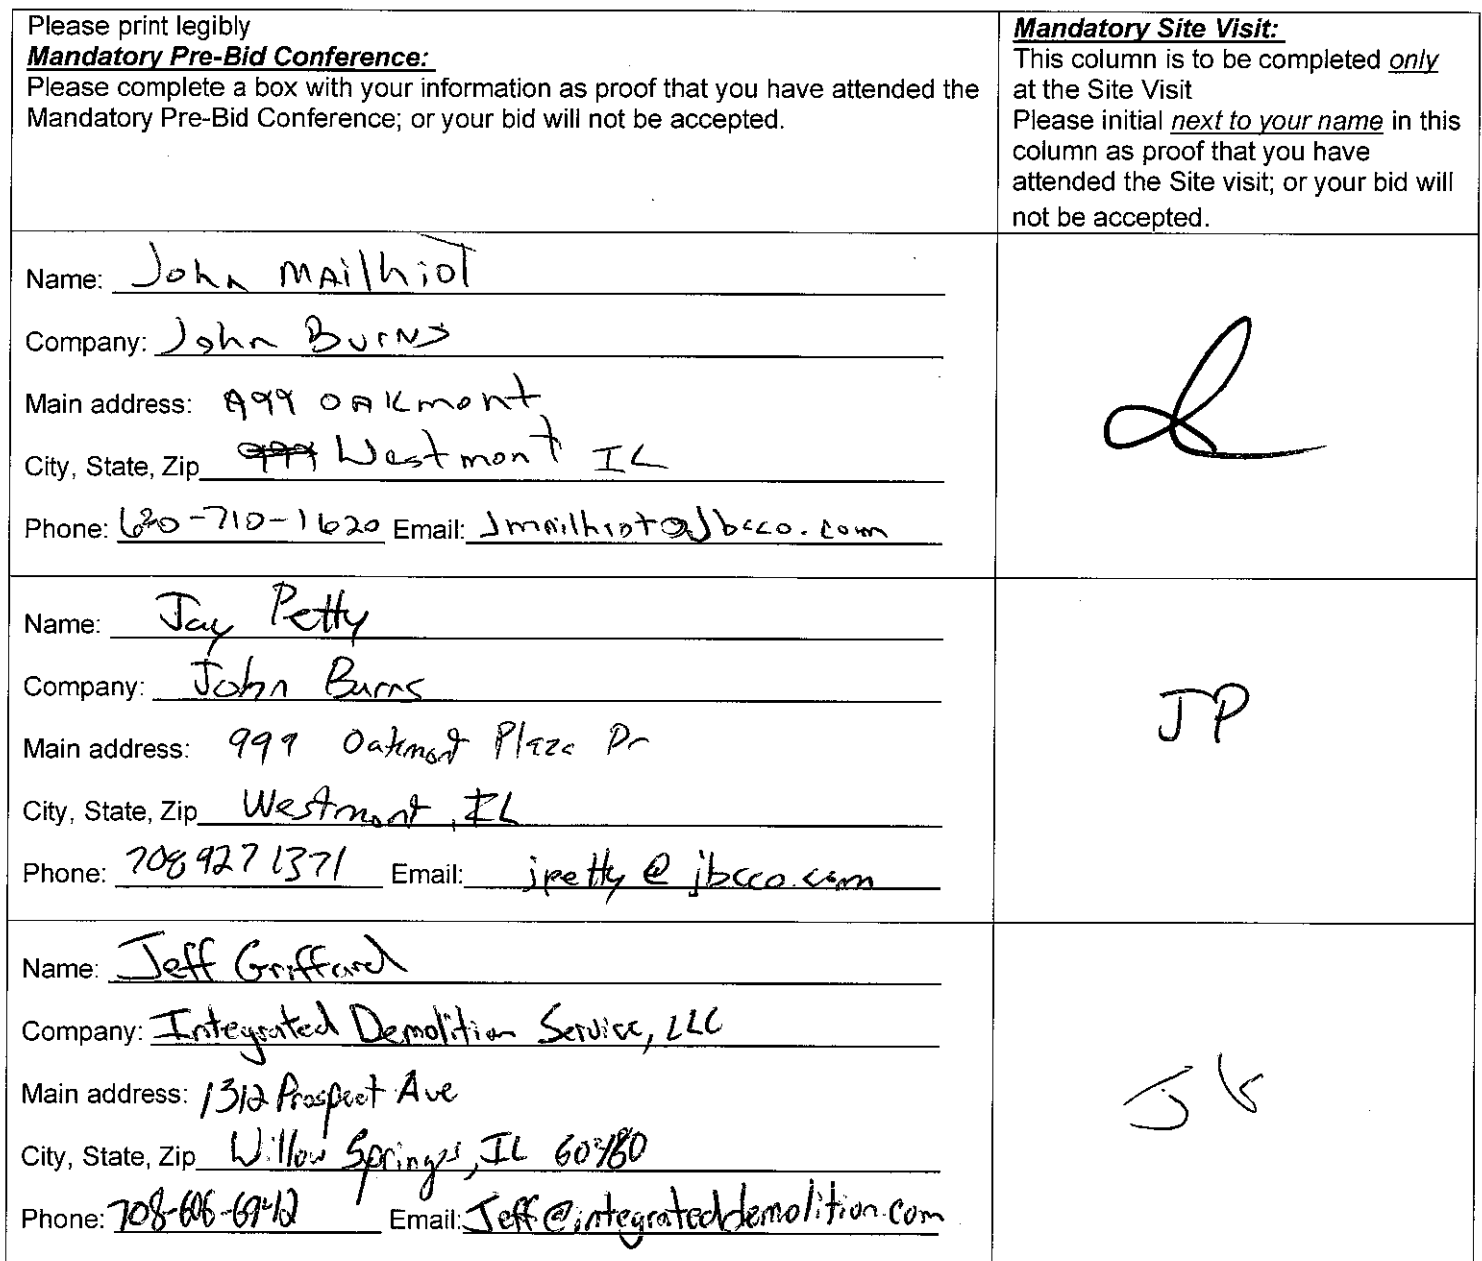 Please print legibly
Mandatory Pre-Bid Conference:
Please complete a box with your information as proof that you have attended the
Mandatory Pre-Bid Conference; or your bid will not be accepted.
Mandatory Site Visit:
This column is to be completed only
at the Site Visit
Please initial next to your name in this
column as proof that you have
attended the Site visit; or your bid will
not be accepted.
Name: John Mailhiot
Company: John Burns
Main address: 999 Oakmont
City, State, Zip Westmont IL
Phone: 630-710-1620 Email: Jmailhiot@Jbcco.com
Name: Jay Petty
Company: John Burns
Main address: 999 Oakmont Plaza Dr
City, State, Zip Westmont, IL
Phone: 708 927 1371 Email: jpetty@jbcco.com
JP
Name: Jeff Griffard
Company: Integrated Demolition Service, LLC
Main address: 1312 Prospect Ave
City, State, Zip Willow Springs, IL 60480
Phone: Email: Jeff@integrateddemolition.com
JG